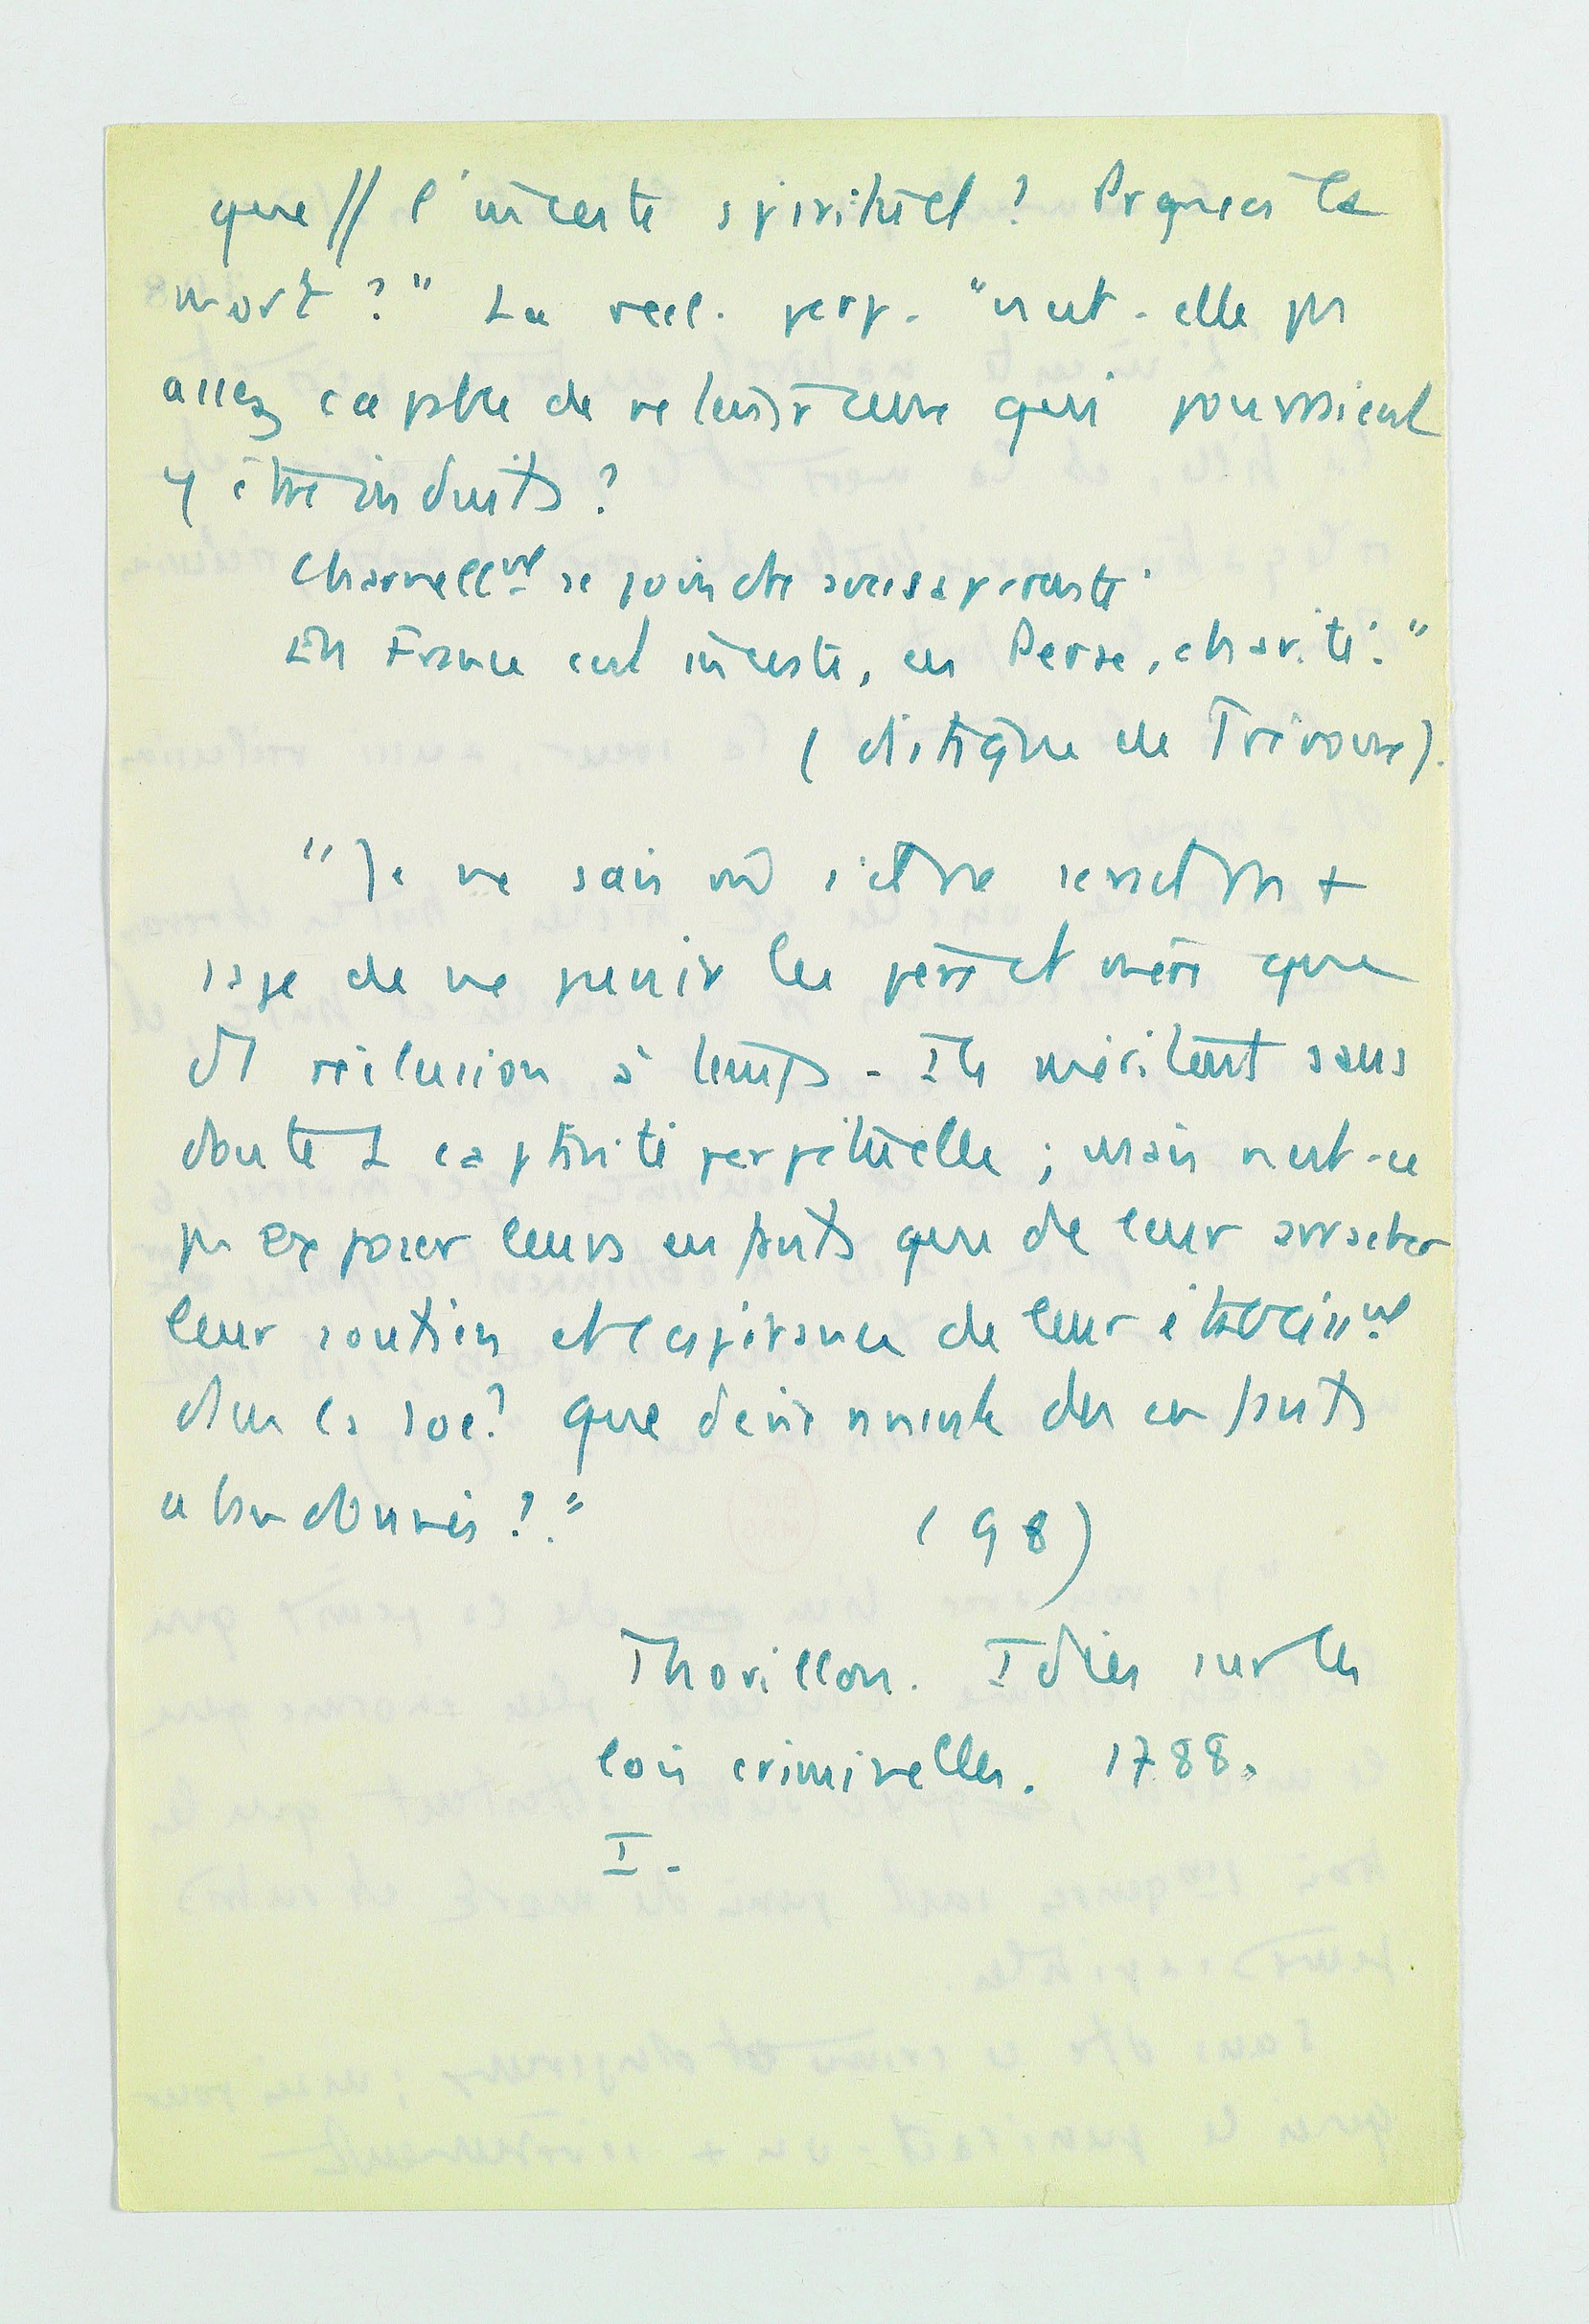 que // l'inceste spirituel ? Prquoi la
mort ? " La recl. perp. "n'est-elle pas
assez capable de retenir ceux qui pourraient
y être induits ?
Charnellmt se joindre avec sa parente
En France est inceste, en Perse, charité."
(distique de Trévoux).
"Je ne sais où s'il ne serait pas +
sage de ne punir les père et mère que
d'1 réclusion à temps. Ils méritent sans
doute 1 captivité perpétuelle ; mais n'est-ce
pas exposer leurs enfants que de leur arracher
leur soutien et l'espérance de leur établissmt
dans la soc? que deviennent des enfants
abandonnés ?."
(98)
Thorillon. Idées sur les
lois criminelles. 1788.
I.